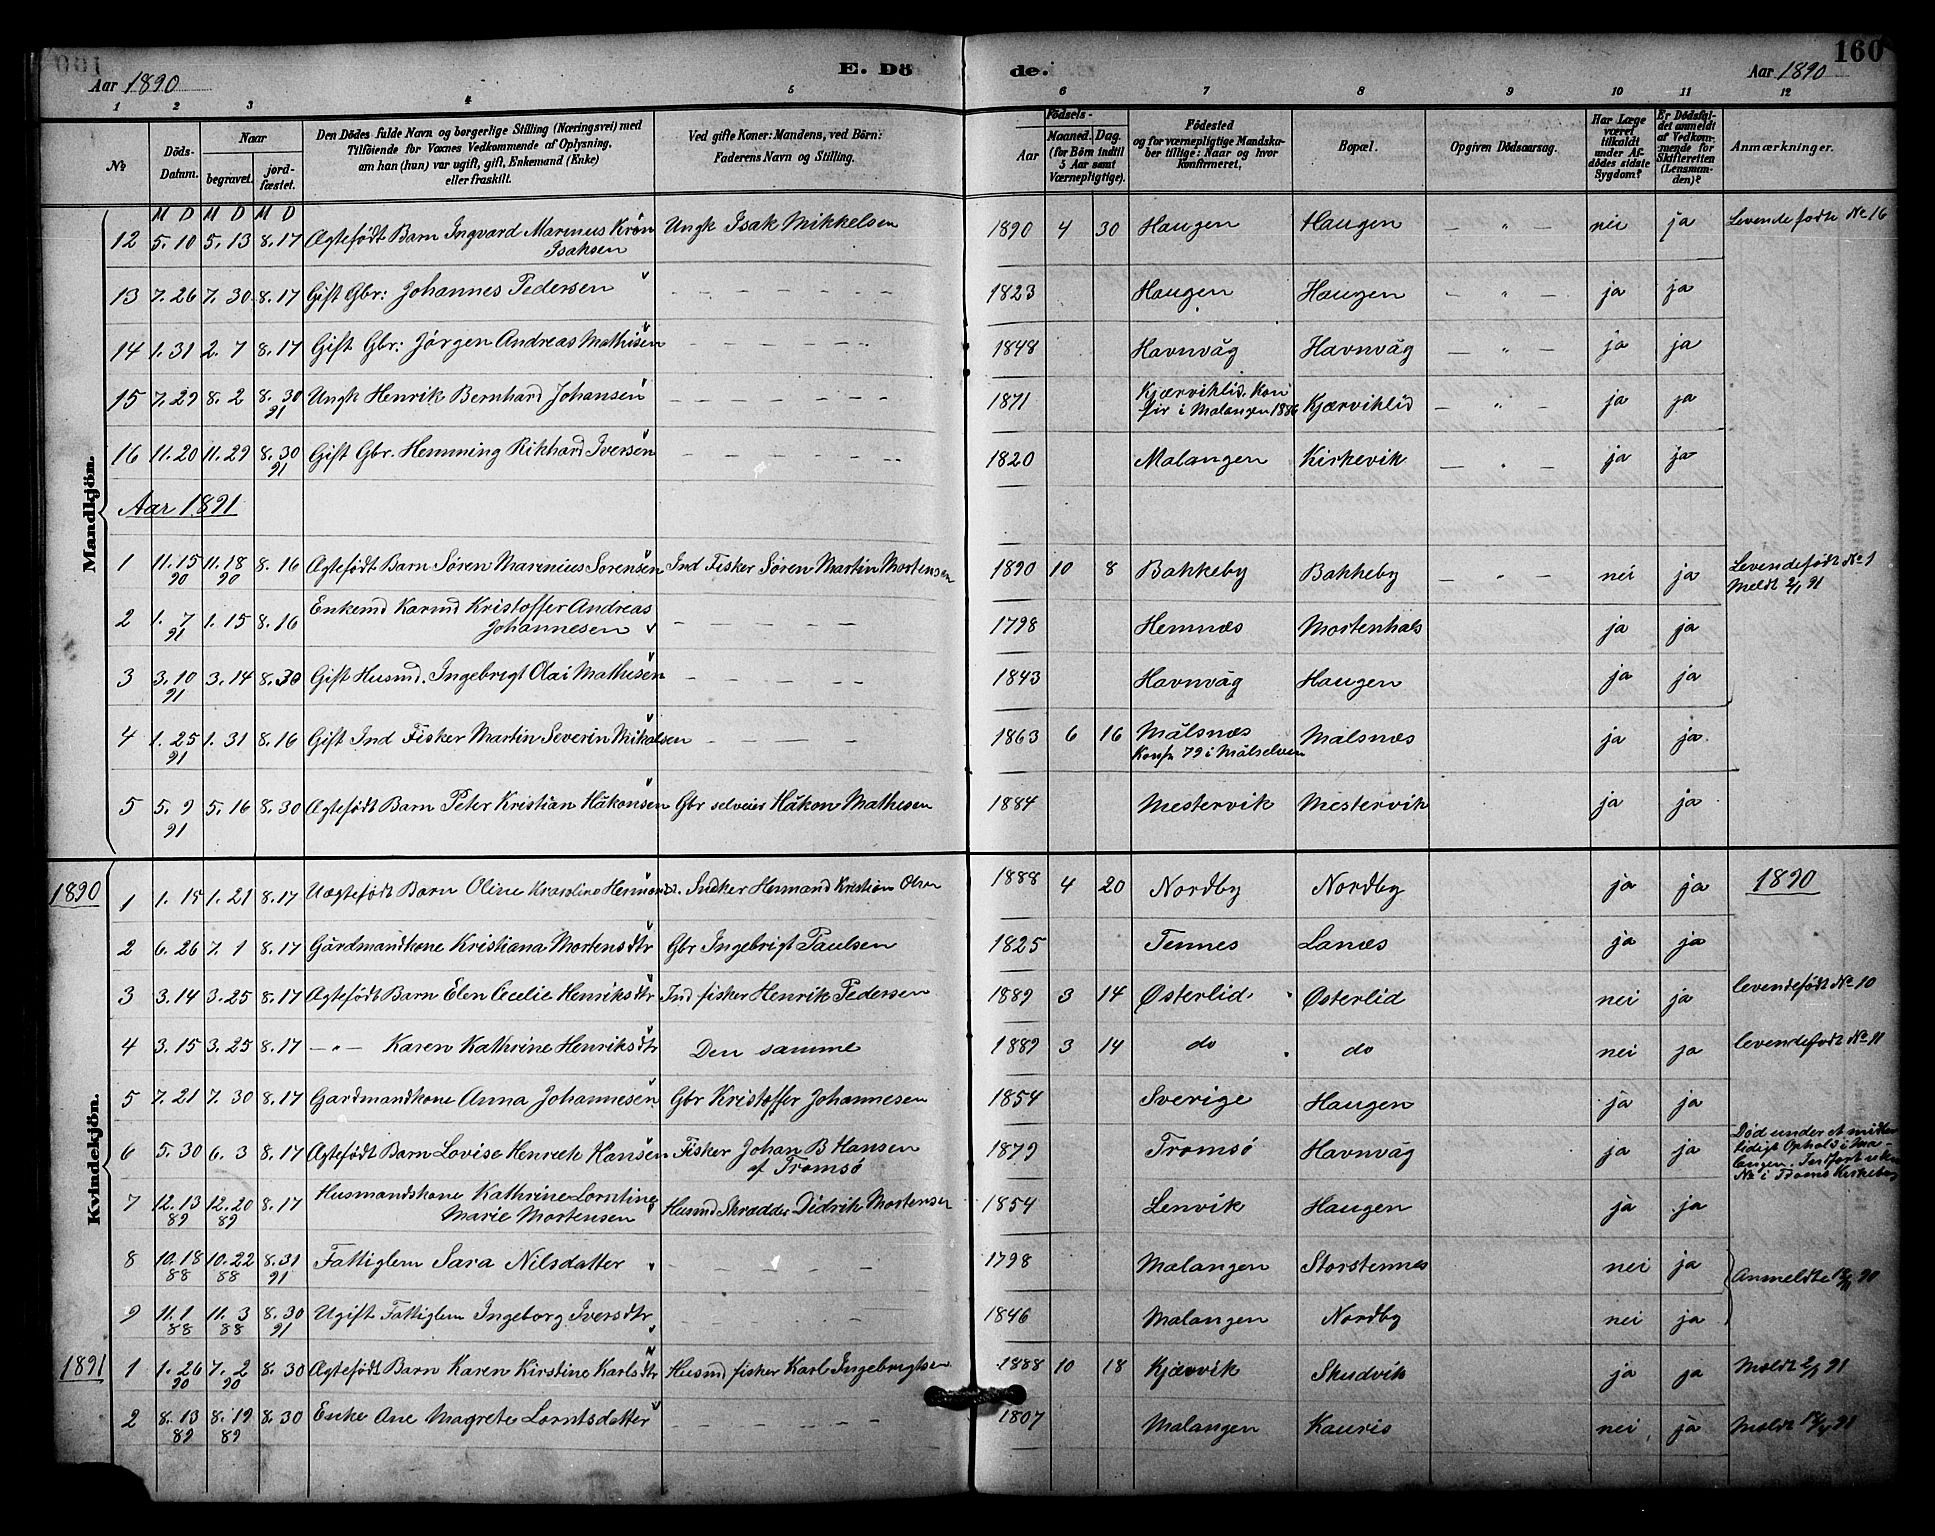 Aar 1890 E. Dö de. Aar 1890 160
1 2 3 4 5 6 7 8 9 10 11 12
No
Döds-Datum.
Naar
begravet.
jordfæstet.
Den Dödes fulde Navn og borgerlige Stilling (Næringsvei) med
Tilföiende for Voxnes Vedkommende af Oplysning,
om han (hun) var ugift, gift, Enkemand (Enke)
eller fraskilt.
Ved gifte Koner: Mandens, ved Börn:
Faderens Navn og Stilling.
Födsels-
Aar
Maaned. Dag.
(for Börn indtil
5 Aar samt
Værnepligtige).
Födested
og for værnepligtige Mandska-
ber tillige: Naar og hvor
konfirmeret,
Bopæl.
Opgiven Dödsaarsag.
Har Læge
været
tilkaldt
under Af-
dödes sidste
Sygdom?
Er Dödsfal-
det anmeldt
af Vedkom-
mende for
Skifteretten
(Lensman-
den)?
Anmærkninger.
Mandkjön.
M D M D M D
12 5. 10 5. 13 8. 17 Ægtefödt Barn Ingvard Marinius Krøn Isaksen Ungk Isak Mikkelsen 1890 4 30 Haugen Haugen — " — nei ja Levende fødte No 16
13 7. 26 7. 30 8. 17 Gift Gbr: Johannes Pedersen — — — — — 1823 Haugen Haugen — " — ja ja
14 1. 31 2. 7 8. 17 Gift Gbr: Jørgen Andreas Mathisen — — — — — 1848 Havnvåg Havnvåg — " — ja ja
15 7. 29 8. 2 8. 30 91 Ungk Henrik Bernhard Johansen — — — — — 1871 Kjærviklid. Kon
fir i Malangen 1886 Kjærviklid — " — ja ja
16 11. 20 11. 29 8. 30 91 Gift Gbr. Hemming Rikhard Iversen — — — — — 1820 Malangen Kirkevik — " — ja ja
Aar 1891
1 11. 15 90 11. 18 90 8. 16 Ægtefödt Barn Søren Marinius Sørensen Ind Fisker Søren Martin Mortensen 1890 10 8 Bakkeby Bakkeby — " — nei ja Levendefødt No 1
Meldt 2/1 91
2 1. 7 91 1. 15 8. 16 Enkemd Karmd Kristoffer Andreas
Johannesen — — — — 1798 Hemnæs Mortenhals ja ja
3 3. 10 91 3. 14 8. 30 Gift Husmd. Ingebrigt Olai Mathisen — — — — — 1843 Havnvåg Haugen ja ja
4 1. 25 91 1. 31 8. 16 Gift Ind Fisker Martin Severin Mikalsen — — — — 1863 6 16 Målsnæs
Konf. 79 i Målselven Målsnæs ja ja
5 5. 9 91 5. 16 8. 30 Ægtefödt Barn Peter Kristian Håkonsen Gbr selveier Håkon Mathisen 1884 Mestervik Mestervik ja ja
Kvindekjön.
1890
1 1. 15 1. 21 8. 17 Uægtefödt Barn Oline Indker Hermand Kristian Olsen 1888 4 20 Nordby Nordby ja ja 1890
2 6. 26 7. 1 8. 17 Gårdmandkone Kristiana Mortensdtr Gbr Ingebrigt Paulsen 1825 Tennes Lanæs ja ja
3 3. 14 3. 25 8. 17 Ægtefödt Barn Elen Cecelie Henriksdtr Ind fisker Henrik Pedersen 1889 3 14 Østerlid Østerlid nei ja levendefødt No 10
4 3. 15 3. 25 8. 17 — " — Karen Kathrine Henriksdtr Den samme 1889 3 14 do do nei ja levendefødt No 11
5 7. 21 7. 30 8. 17 Gardmandkone Anna Johannesen Gbr Kristoffer Johannesen 1854 Sverige Haugen ja ja
6 5. 30 6. 3 8. 17 Ægtefödt Barn Lovise Henriette Hansen Fisker Johan B Hansen
af Tromsø 1879 Tromsø Havnvåg ja ja Død under et midler
tidigt Ophold i Ma-
langen. Indført uden
No i Troms Kirkebog
7 12. 13 89 12. 20 89 8. 17 Husmandskone Kathrine Lorntine
Marie Mortensen Husmd Skrædder Didrik Mortensen 1854 Lenvik Haugen ja ja
8 10. 18 88 10. 22 88 8. 31 91 Fattiglem Sara Nilsdatter — — — — 1798 Malangen Storstennes nei ja
Anmeldte 90
9 11. 1 88 11. 3 88 8. 30 91 Ugift Fattiglem Ingeborg Iversdtr — — — — 1846 Malangen Nordby nei ja
1891
1 1. 26 90 7. 2 90 8. 30 Ægtefödt Barn Karen Kirstine Karlsdtr Husmd fisker Karl Ingebrigtsen 1888 10 18 Kjærvik Skudvik ja ja Meldt 2/1 91
2 8. 13 89 8. 19 89 8. 30 Enke Ane Magrete Lorntsdatter — — — — — 1807 Malangen Kauris nei ja Meldt 91